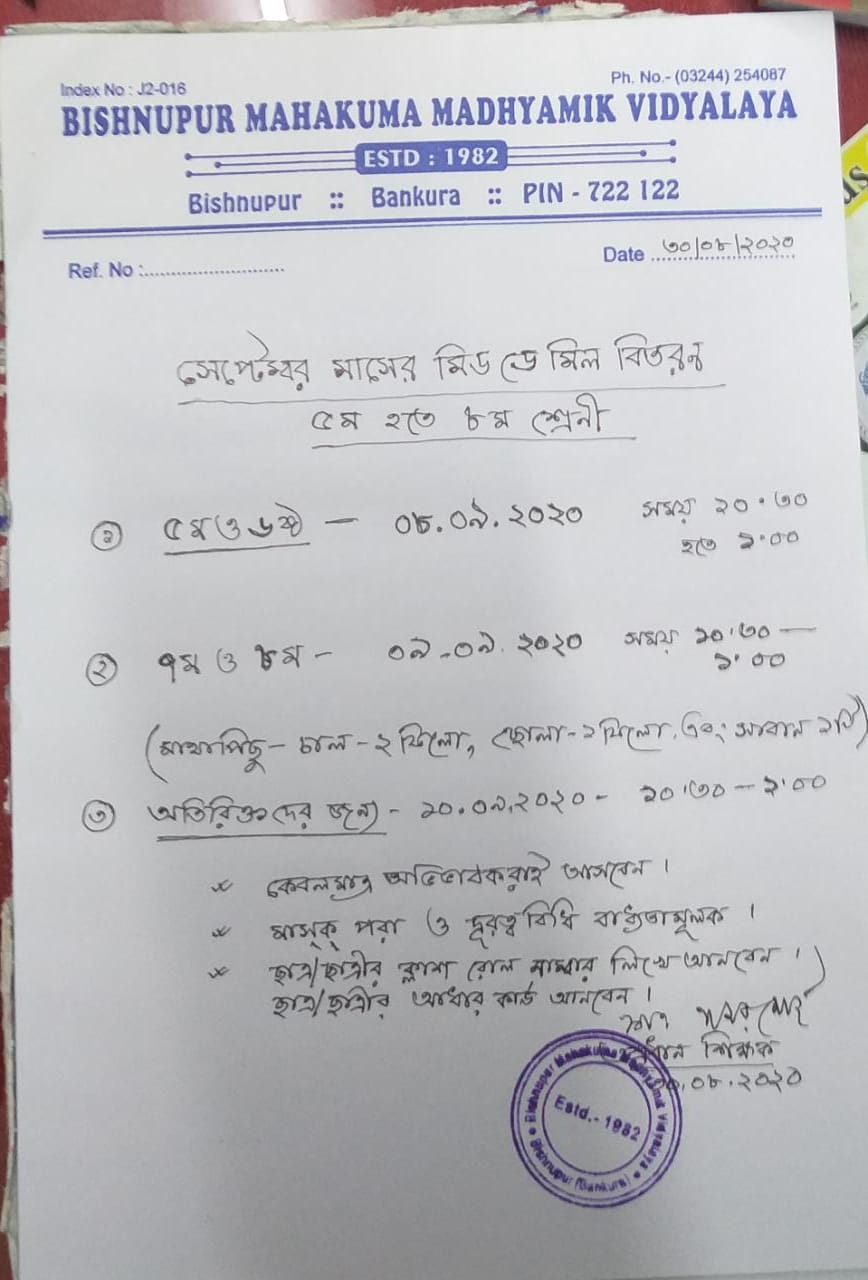 Index No : J2-016
Ph. No.- (03244) 254087
BISHNUPUR MAHAKUMA MADHYAMIK VIDYALAYA
ESTD : 1982
Bishnupur :: Bankura :: PIN - 722 122
Ref. No :............................
Date ৩০/০৮/২০২০
সেপ্টেম্বর মাসের মিড ডে মিল বিতরন
৫ম হতে ৮ম শ্রেনী
১ ৫ম ও ৬ষ্ঠ — ০৮.০৯.২০২০ সময় ১০.৩০
হতে ১.০০
২ ৭ম ও ৮ম - ০৯.০৯.২০২০ সময় ১০.৩০ —
১.০০
(মাথাপিছু - চাল - ২ কিলো, ছোলা - ১ কিলো, এবং সাবান ১টি)
৩ অতিরিক্তদের জন্য - ১০.০৯.২০২০ - ১০.৩০ - ১.০০
* কেবলমাত্র অভিভাবকরাই আসবেন ।
* মাস্ক্ পরা ও দূরত্ব বিধি বাধ্যতামূলক ।
* ছাত্র/ছাত্রীর ক্লাশ রোল নাম্বার লিখে আনবেন ।
ছাত্র/ছাত্রীর আধার কার্ড আনবেন ।
প্রধান শিক্ষক
৩০.০৮.২০২০
Bishnupur Mahakuma Madhyamik Vidyalaya
Estd.- 1982
Bishnupur (Bankura)